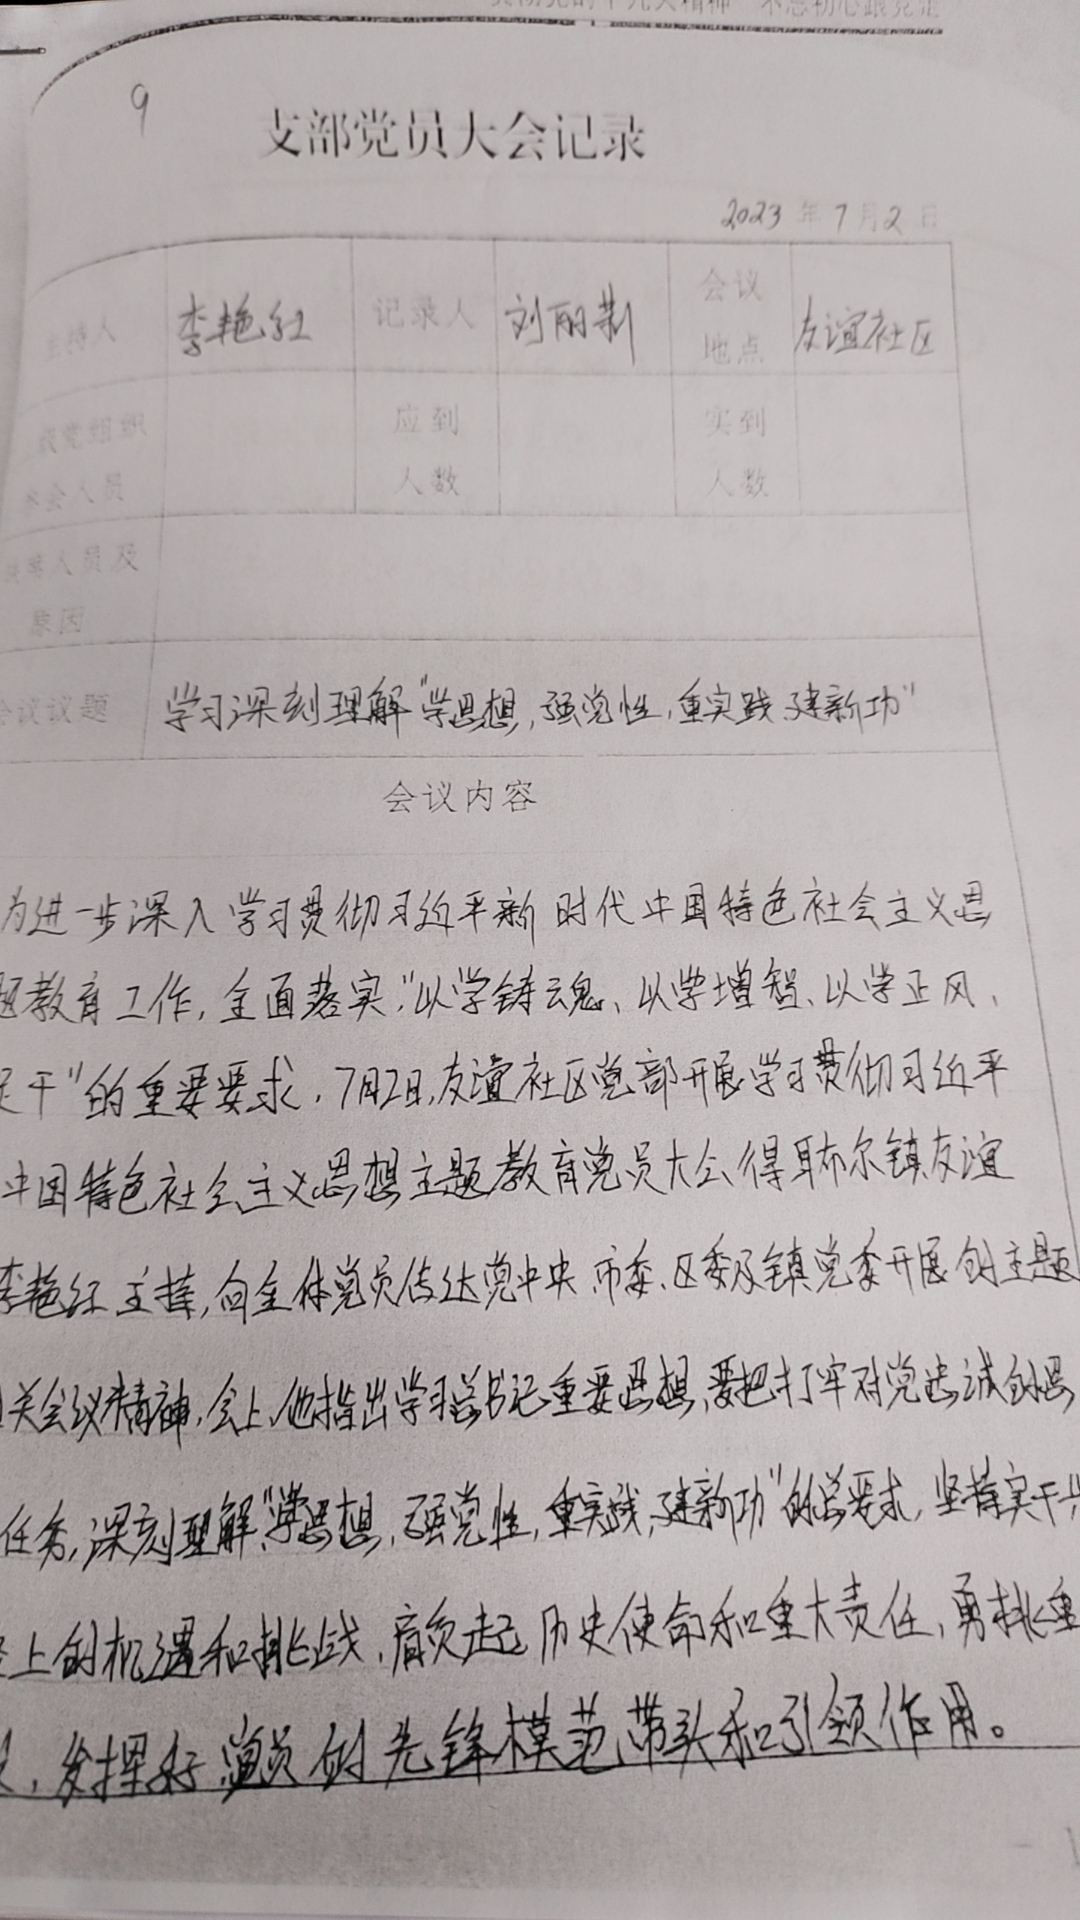 9
支部党员大会记录
2023 年 7 月 2 日
主持人 李艳红 记录人 刘丽莉 会议地点 友谊社区
党组织 应到人数 实到人数
参会人员
人员及
原因
会议议题 学习深刻理解“学思想，强党性，重实践，建新功”
会议内容
为进一步深入学习贯彻习近平新时代中国特色社会主义思
题教育工作，全面落实，“以学铸魂、以学增智、以学正风、
促干”的重要要求，7月2日，友谊社区党部开展学习贯彻习近平
中国特色社会主义思想主题教育党员大会，得耳布尔镇友谊
李艳红主持，向全体党员传达党中央、市委、区委及镇党委开展的主题
关会议精神，会上，他指出学习总书记重要思想，要把打牢对党忠诚的思
任务，深刻理解“学思想，强党性，重实践，建新功”的总要求，坚持实干
上的机遇和挑战，肩负起历史使命和重大责任，勇挑重
，发挥好党员的先锋模范带头和引领作用。